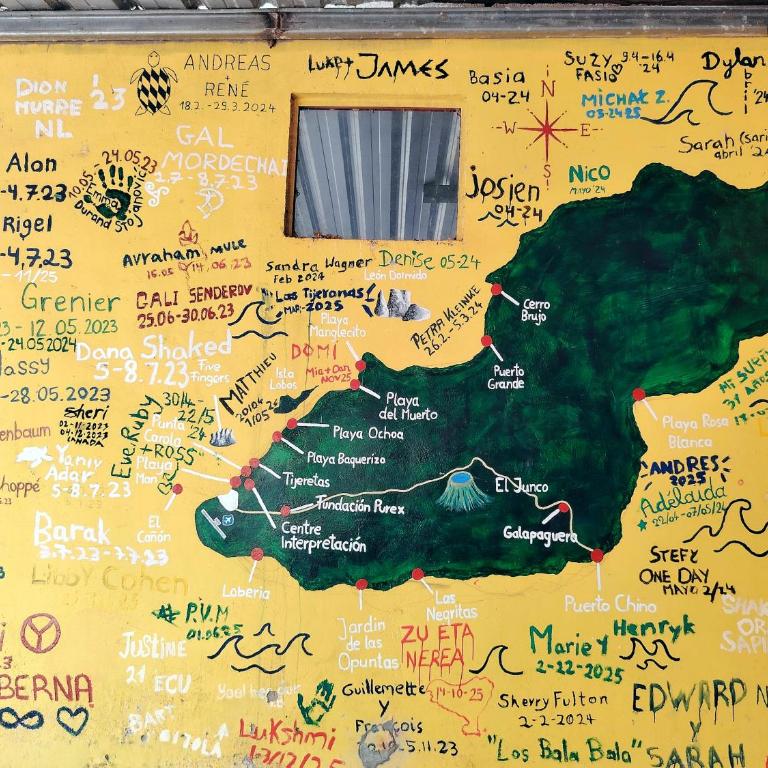 DION
MURRE '23
NL
ANDREAS
+
RENÉ
18.2.-29.3.2024
LUKE + JAMES
Basia
04-24
SUZY 9.4-16.4
FASIO '24
MICHAL Z.
05-24-25
Dylan
Sarah (sari
abril '24
N
-W E-
S
Nico
MAYO '24
Josien
04-24
GAL
MORDECHAI
2.7-8.7.23
Alon
-4.7.23
10.05-24.05.23
Emma
Durand Stojanovic
Rigel
-4,7.23
-11/25
AVraham MULE
16.05 14.06.23
Sandra Wagner
Feb 2024
Denise 05-24
León Dormido
Las Tijeranas!
MAR-2025
PETRA KLEINKE
26.2.-5.3.24
Cerro
Brujo
GALI SENDEROV
25.06-30.06.23
Grenier
23 - 12.05.2023
-24.05.2024
Dana Shaked
5-8.7.23
Playa
Manglecito
DOMI
Mia+Dan
NOV25
Isla
Lobos
Five
Fingers
MATTHIEU
Puerto
Grande
-28.05.2023
Sheri
02-11-2023
04-12-2023
CANADA
enbaum
Eve, Ruby
+ROSS
30/4-
22/5
'24
Punta
Carola
Playa
Man
Yaniv
Adar
5-8.7.23
hoppé
Playa
del Muerto
Playa Ochoa
Playa Baquerizo
Tijeretas
Fundación Purex
Centre
Interpretación
El Junco
Galapaguera
Playa Rosa
Blanca
ANDRES
2025
Adélaïda
22/04-07/05/24
Barak
3.7.23-7.7.23
El
Cañón
Libby Cohen
Loberia
Las
Negritas
Jardin
de las
Opuntas
Puerto Chino
STEFY
ONE DAY
MAYO 2/24
P.V.M
01.06.25
JUSTINE
21 ECU
ZU ETA
NEREA
14-10-25
Marie Y Henryk
2-22-2025
BERNA
BART
Guillemette
y
François
-5.11.23
Sherry Fulton
2-2-2024
EDWARD
y
SARAH
Lukshmi
"Los Bala Bala"